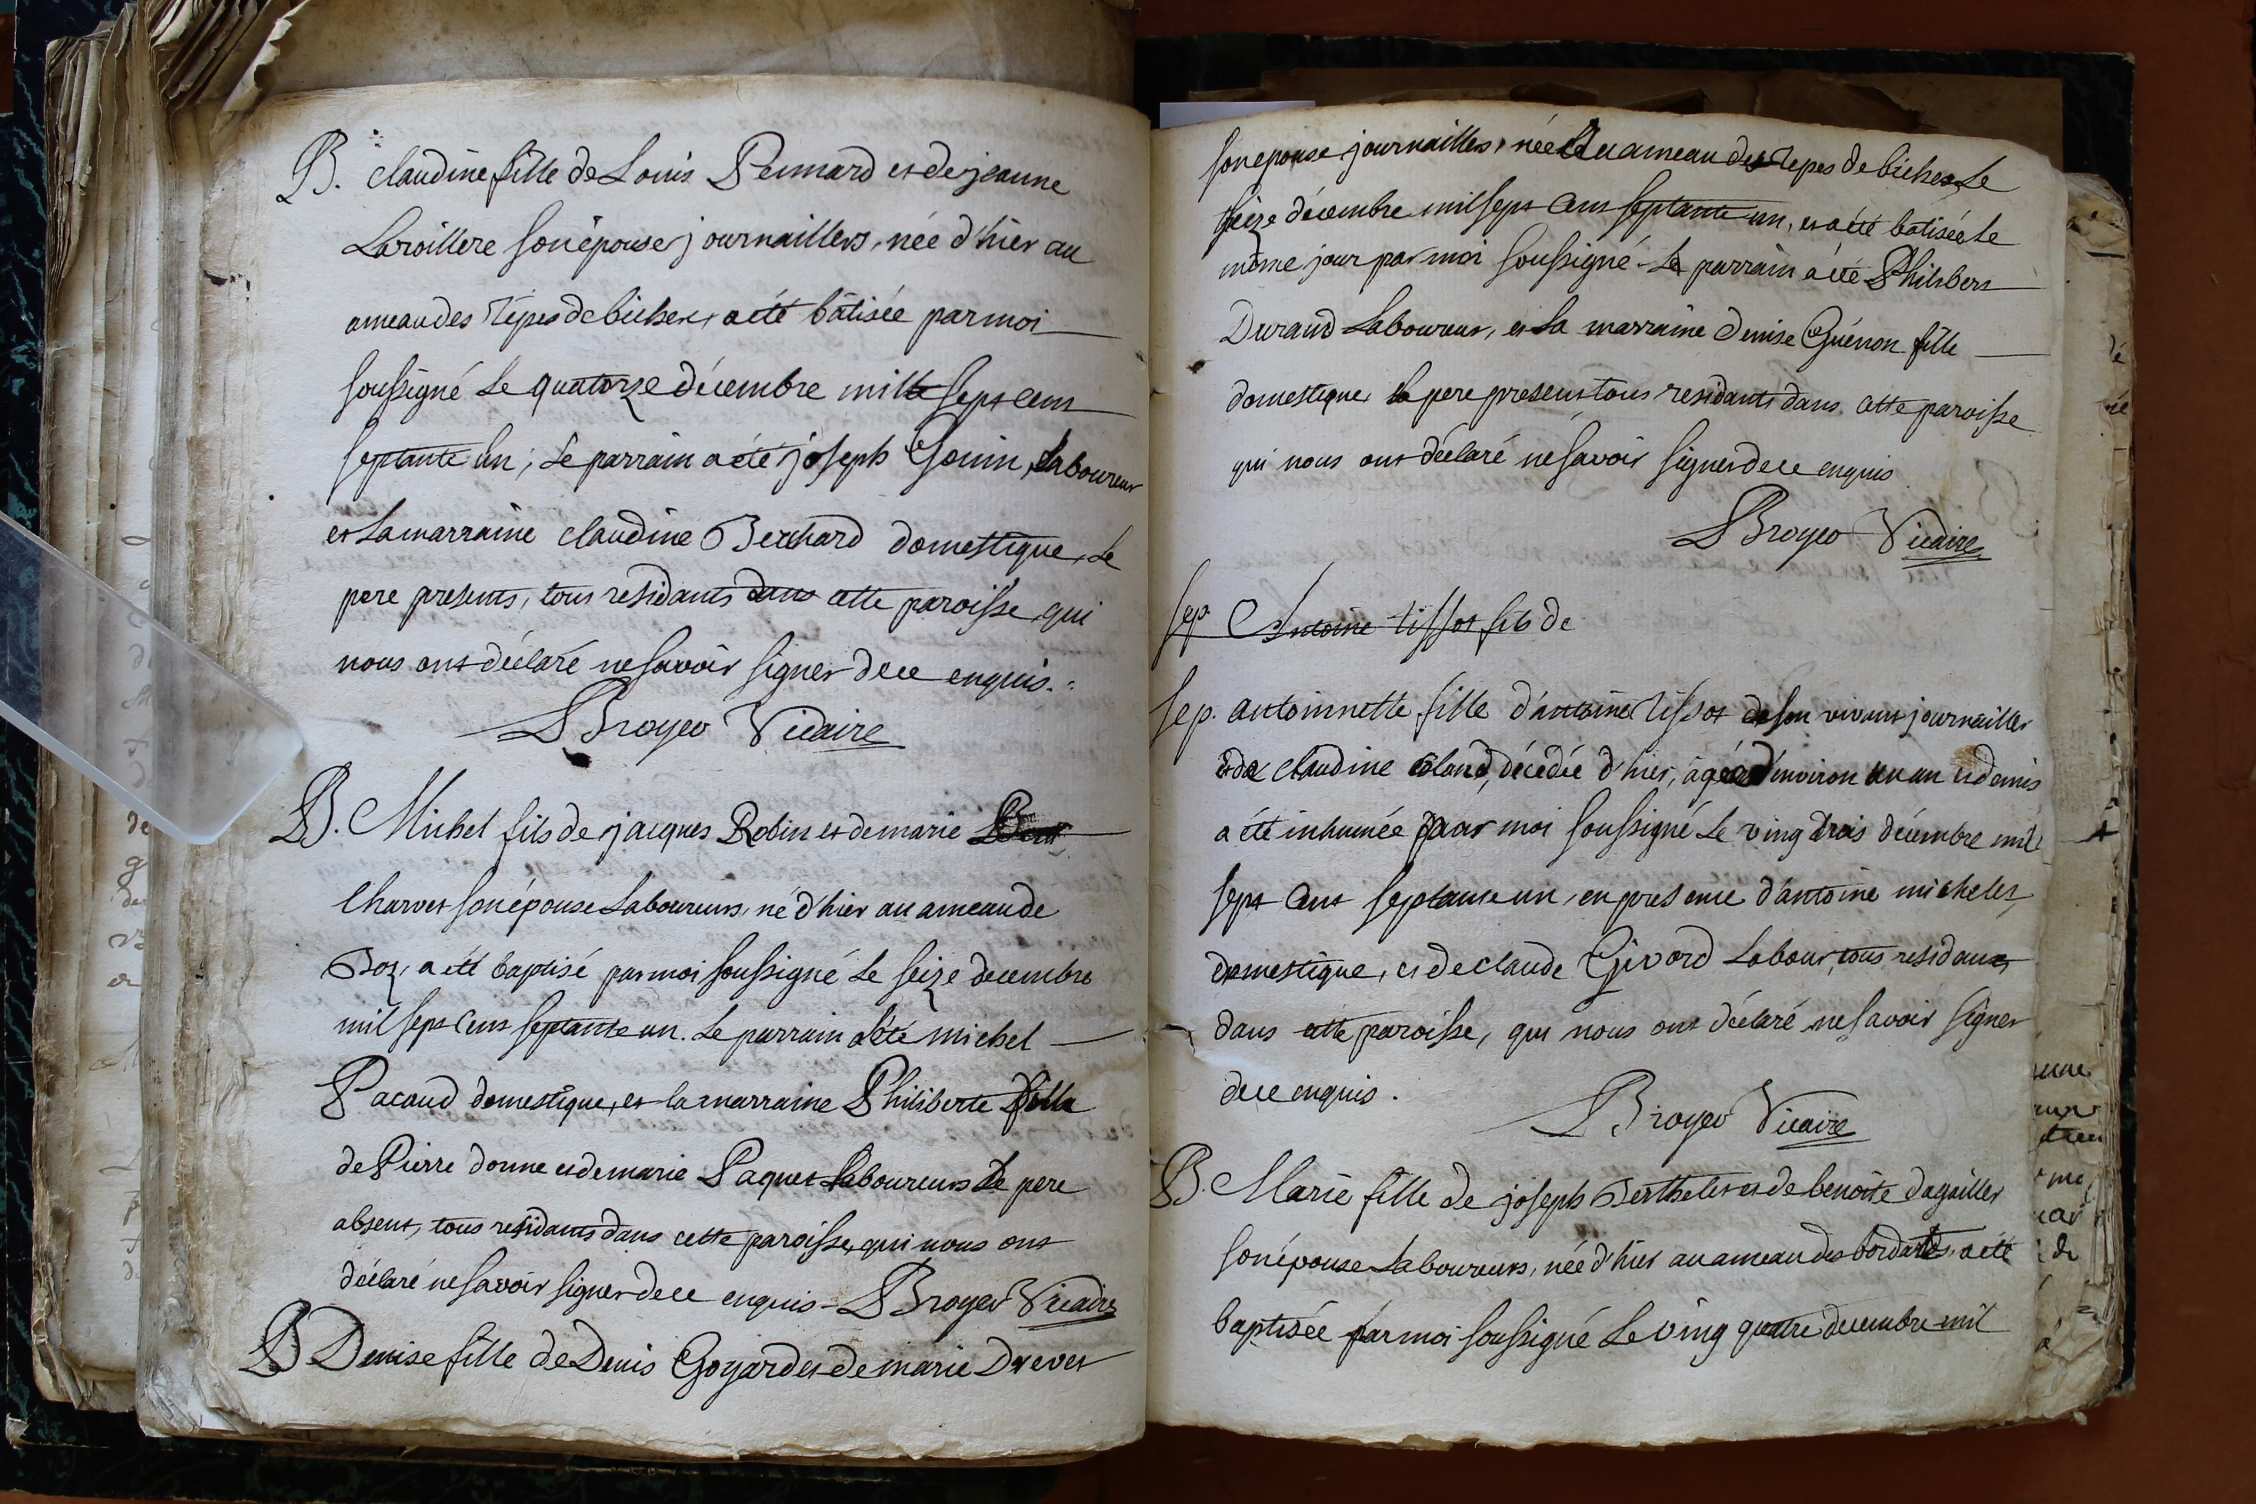 B. claudine fille de Louis Pennard et de jeanne
Laroillere son épouse journaillers, née d'hier au
ameau des répes de bicheu, a été bâtisée par moi
soussigné le quatorze décembre mille sept cens
septante un; le parrain a été joseph Gouin, laboureur
et la marraine claudine Berchard domestique, le
pere presents, tous residants dans cette paroisse, qui
nous ont déclaré ne savoir signer de ce enquis.
Broyer Vicaire
B. Michel fils de jacques Robin et de marie
Charvet son épouse laboureurs, né d'hier au ameau de
a été baptisé par moi soussigné le seize decembre
mil sept cens septante un. Le parrain a été michel
Pacaud domestique, et la marraine Philiberte fille
de Pierre donne et de marie Paquet laboureurs le pere
absent, tous residants dans cette paroisse, qui nous ont
déclaré ne savoir signer de ce enquis - Broyer Vicaire
B Denise fille de Denis Goyard et de marie Drevet
son epouse journailler, née au ameau des repes de bicheu le
seize décembre mil sept cens septante un, et a été batisée le
même jour par moi soussigné - Le parrain a été Philibert
Durand laboureur, et la marraine Denise Guénon fille
domestique, le pere present tous residants dans cette paroisse
qui nous ont déclaré ne savoir signer de ce enquis
Broyer Vicaire
sep. Antoine tissot fils de
sep. antoinnette fille d'antoine tissot de son vivant journailler
et de claudine décédée d'hier, agée d'environ un an et demis
a été inhumée par moi soussigné le ving trois décembre mil
sept cent septante un, en presence d'antoine michelet,
domestique, et de claude Givord labour, tous residans
dans cette paroisse, qui nous ont déclaré ne savoir signer
de ce enquis.
Broyer Vicaire
B. Marie fille de joseph Berthelet et de benoite dagailler
son épouse laboureurs, née d'hier au ameau des bordattes, a été
baptisée par moi soussigné le ving quatre decembre mil